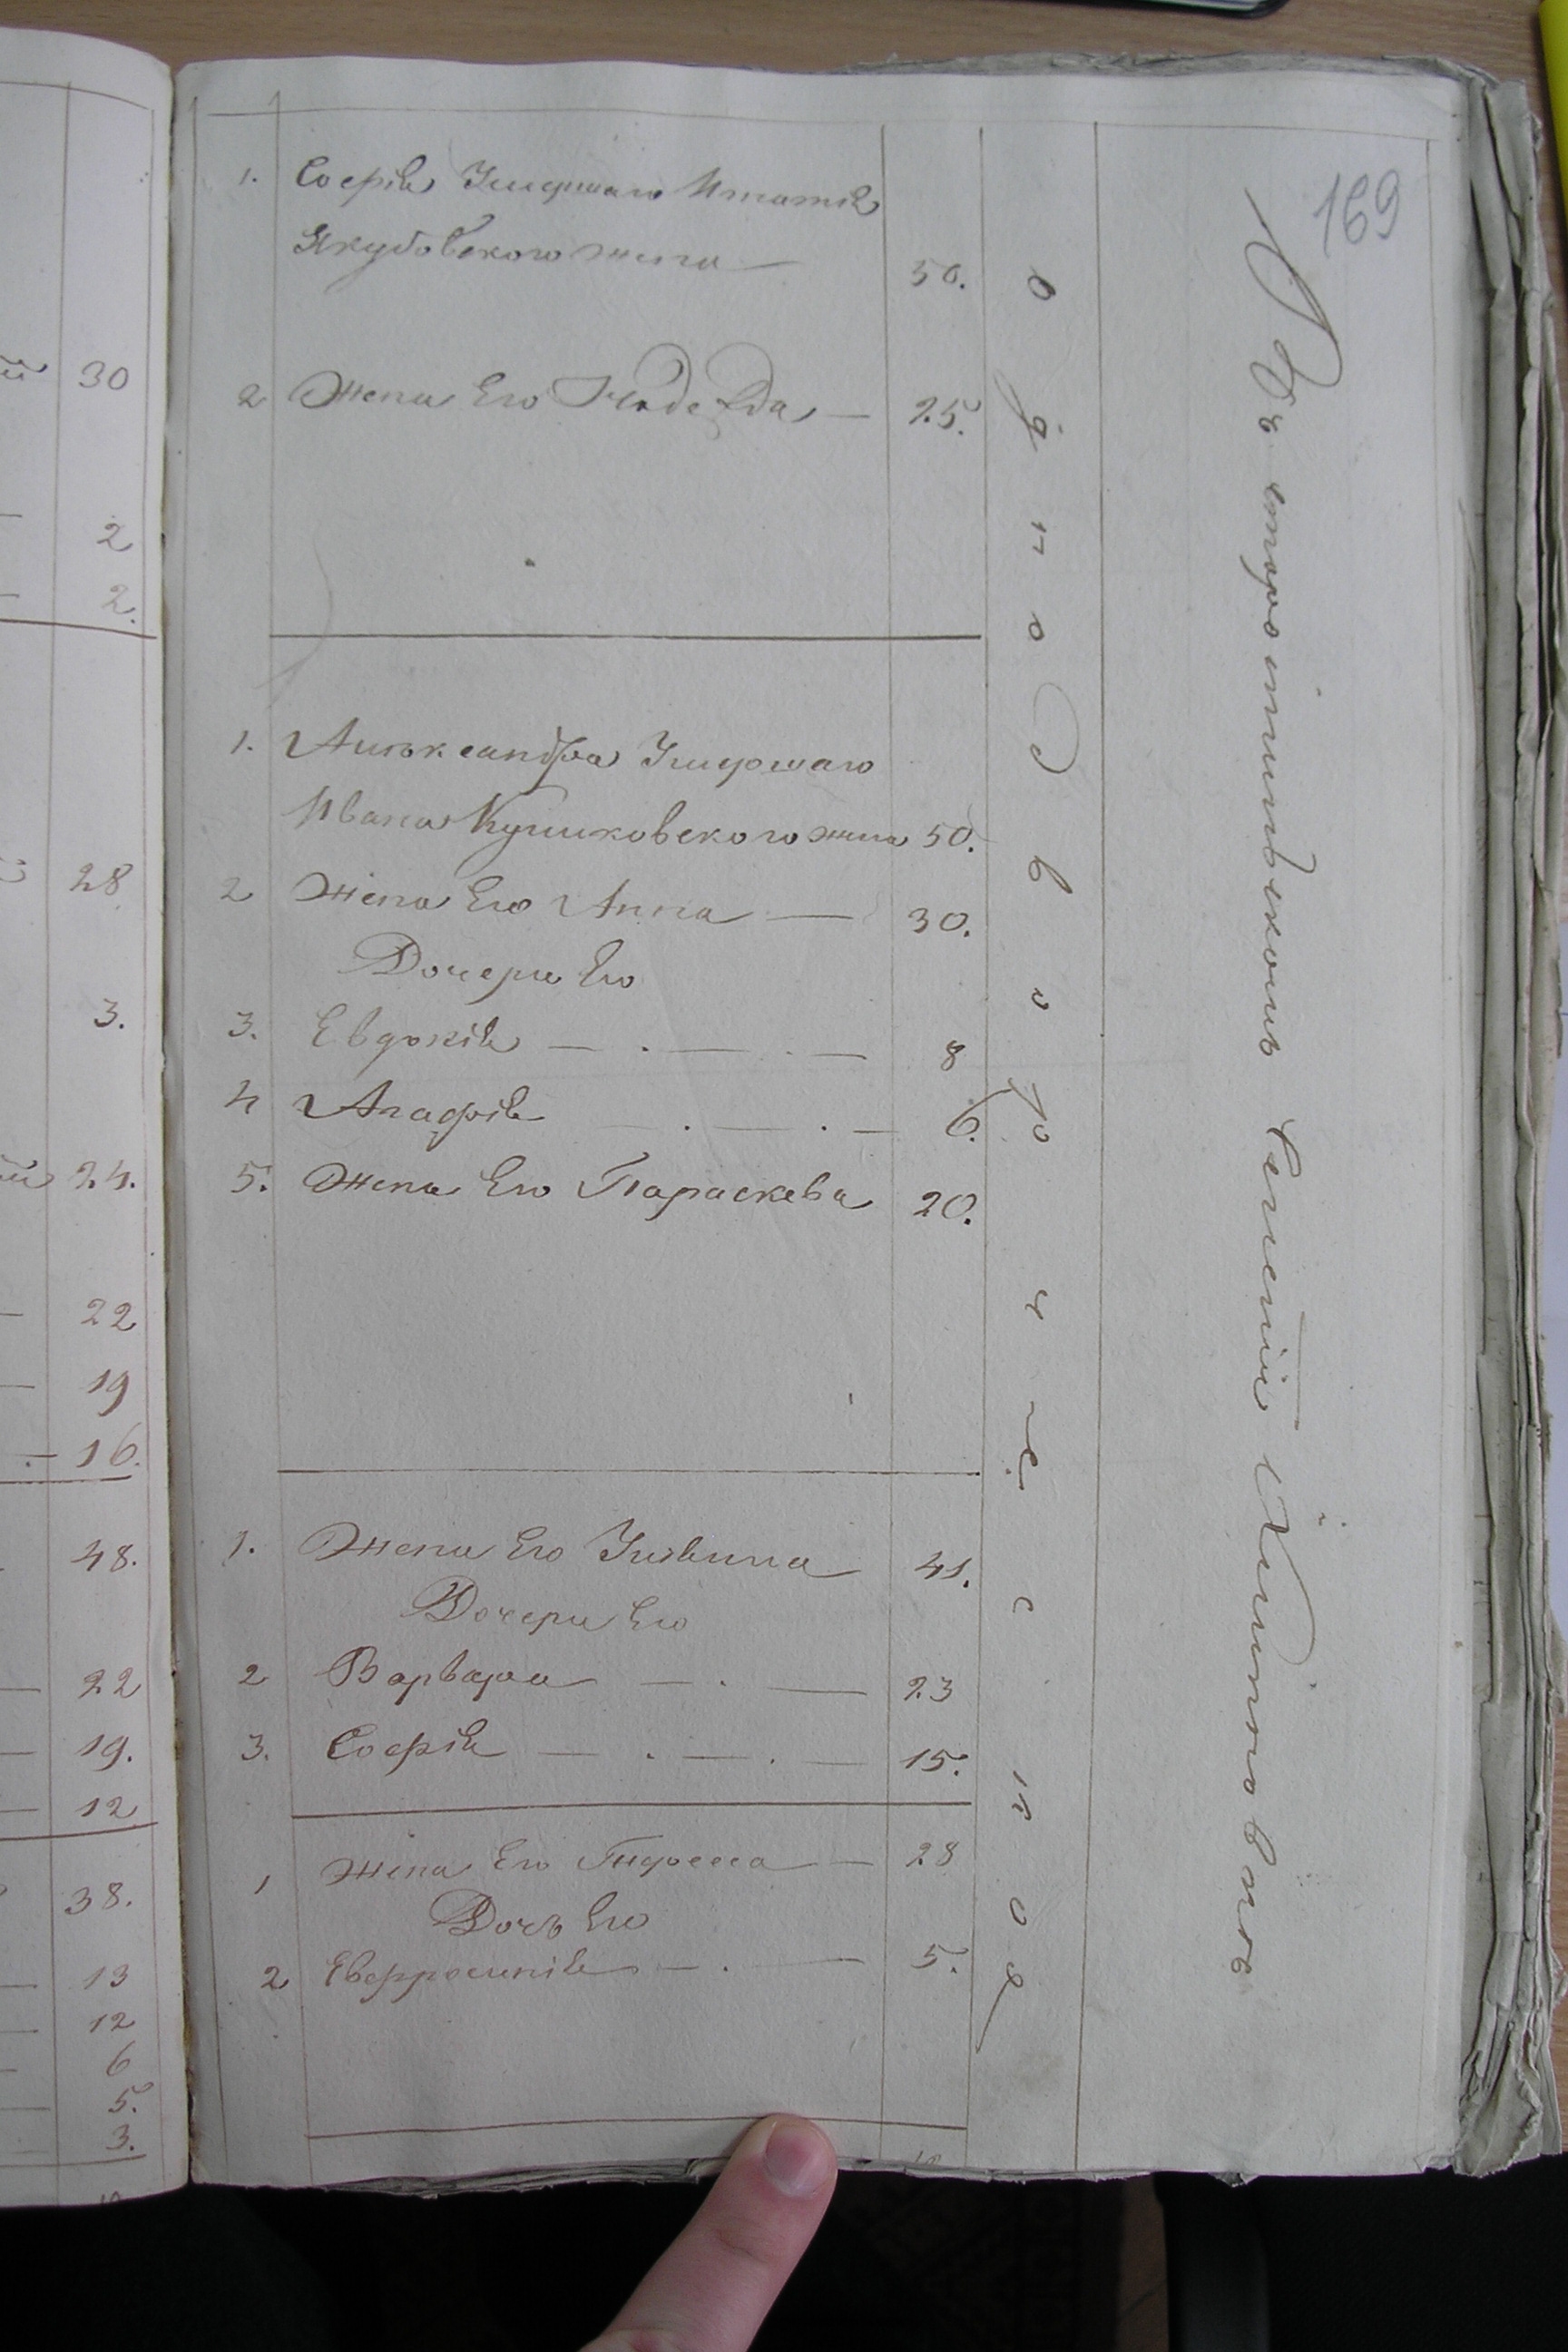 169
1. Софія Умершаго Игнатія
Якубовского жена — 50.
2 Жена Его Надежда — 25.
1. Александра Умершаго
Ивана Кушковского жена 50.
2 Жена Его Анна — 30.
Дочери Его
3. Евдокія — . — . — 8
4 Агафія — . — . — 6.
5. Жена Его Параскева 20.
1. Жена Его Ульяна 41.
Дочери Его
2 Варвара — . — 23
3. Софія — . — . — 15.
1 Жена Его — 28
Дочь Его
2 Евфросинія — . — 5.
однодворческое
Въ Селеніи
30
2
2.
28
3.
24.
22
19
16.
48.
22
19.
12
38.
13
12
6
5.
3.